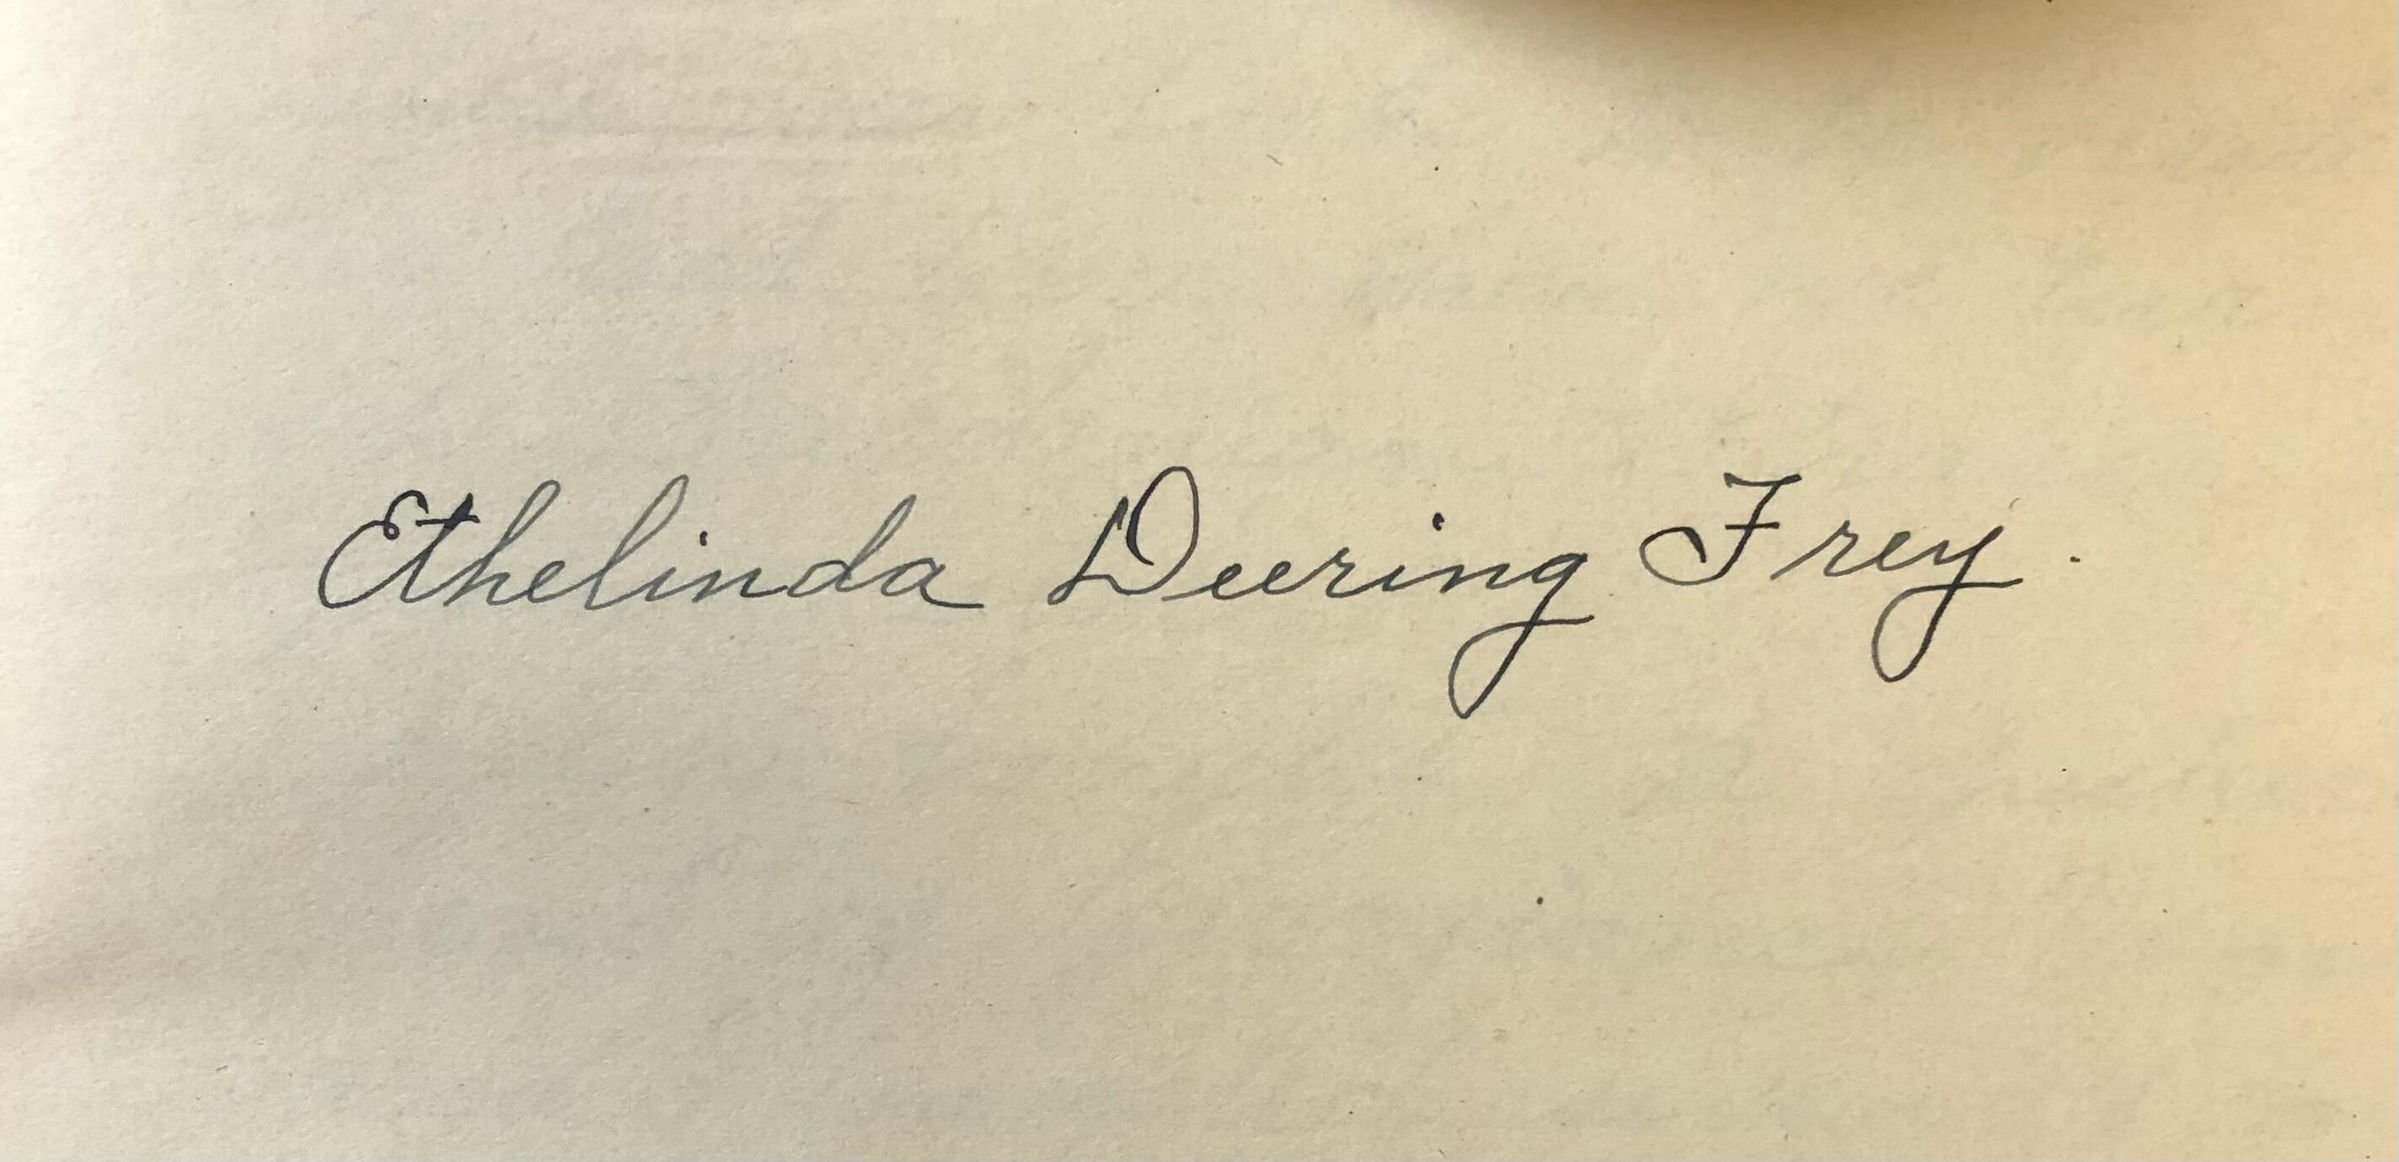 Ethelinda Deering Frey.